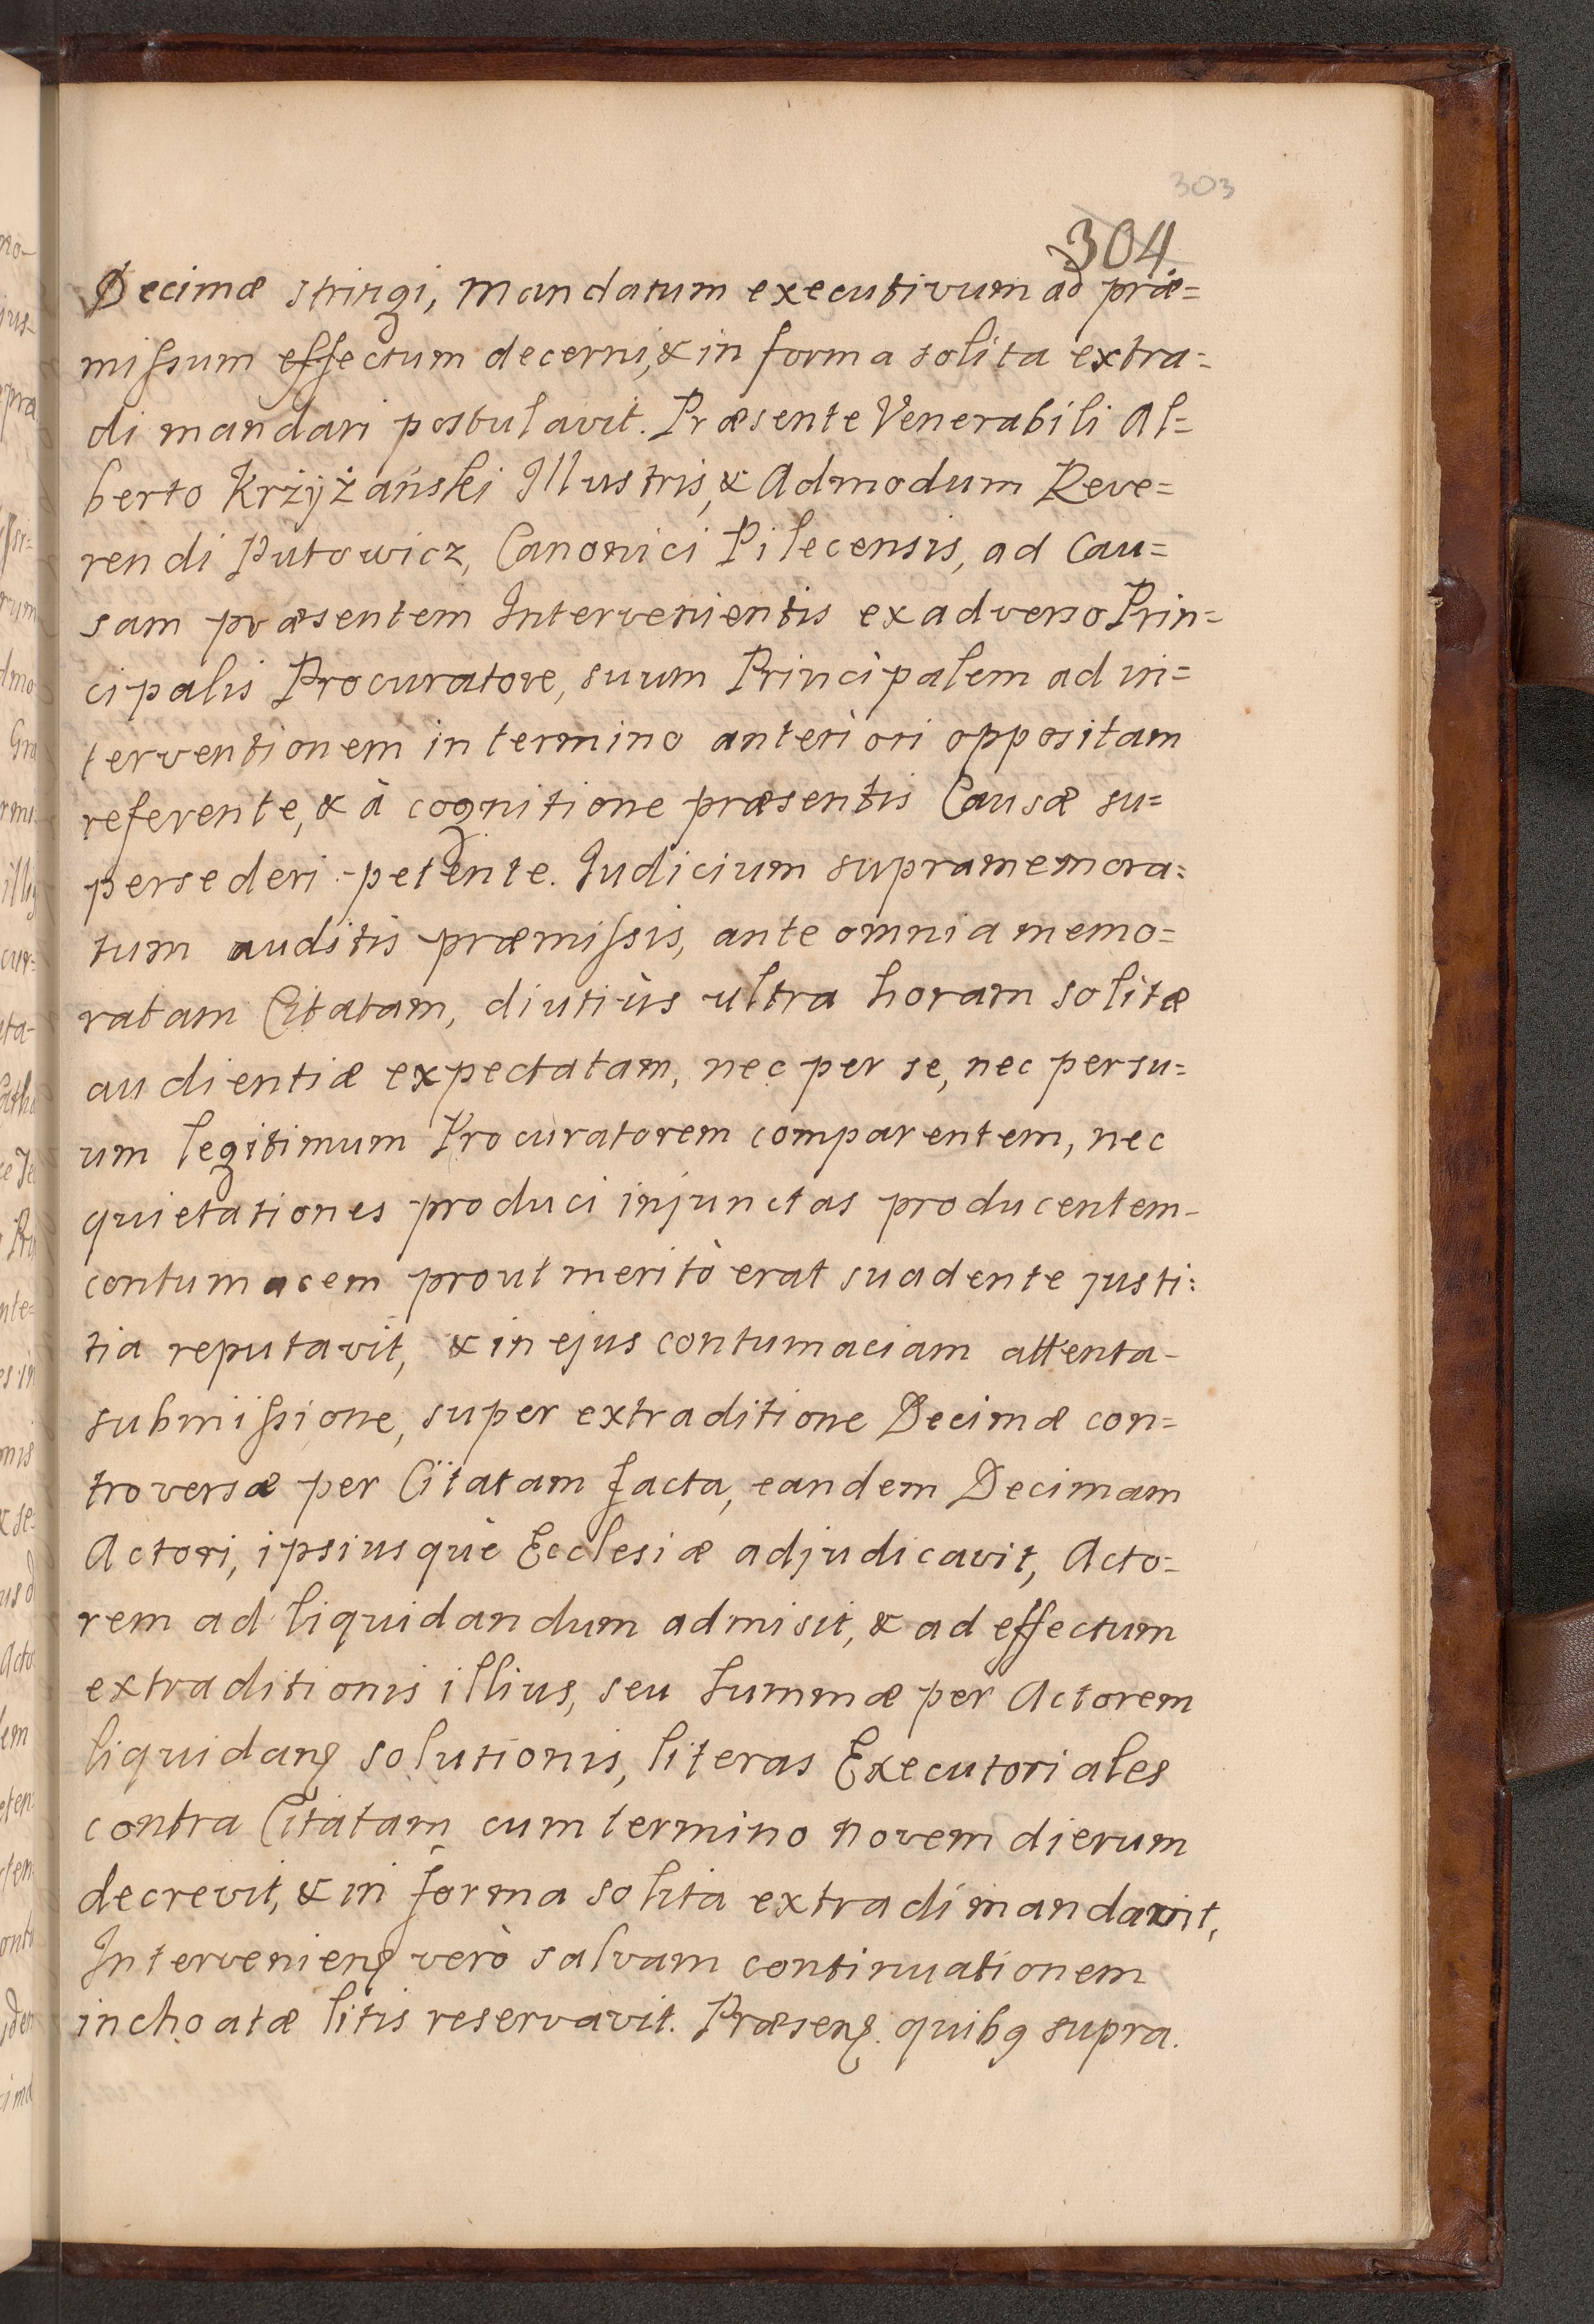 303
304
Decimæ stringi, Mandatum executivum ad præ=
missum effectum decerni, & in forma solita extra=
di mandari postulavit. Præsente Venerabili Al=
berto Krżyżański Illustris, & Admodum Reve=
rendi Putowicz, Canonici Pilecensis, ad Cau=
sam præsentem Intervenientis ex adverso Prin=
cipalis Procuratore, suum Principalem ad in=
terventionem in termino anteriori oppositam
referente, & à cognitione præsentis Causæ su=
persederi petente. Judicium supramemora=
tum auditis præmissis, ante omnia memo=
ratam Citatam, diutiùs ultra horam solitæ
audientiæ expectatam, nec per se, nec per su=
um legitimum Procuratorem comparentem, nec
quietationes produci injunctas producentem-
contumacem prout meritò erat suadente justi=
tia reputavit, & in ejus contumaciam attenta-
submissione, super extraditione Decimæ con=
troversæ per Citatam facta, eandem Decimam
Actori, ipsiusquè Ecclesiæ adjudicavit, Acto=
rem ad liquidandum admisit, & ad effectum
extraditionis illius, seu Summæ per Actorem
liquidanȩ solutionis, literas Executoriales
contra Citatam cum termino novem dierum
decrevit, & in forma solita extradi mandavit,
Intervenienȩ verò salvam continuationem
inchoatæ litis reservavit. Præsenȩ. quibꝯ supra.